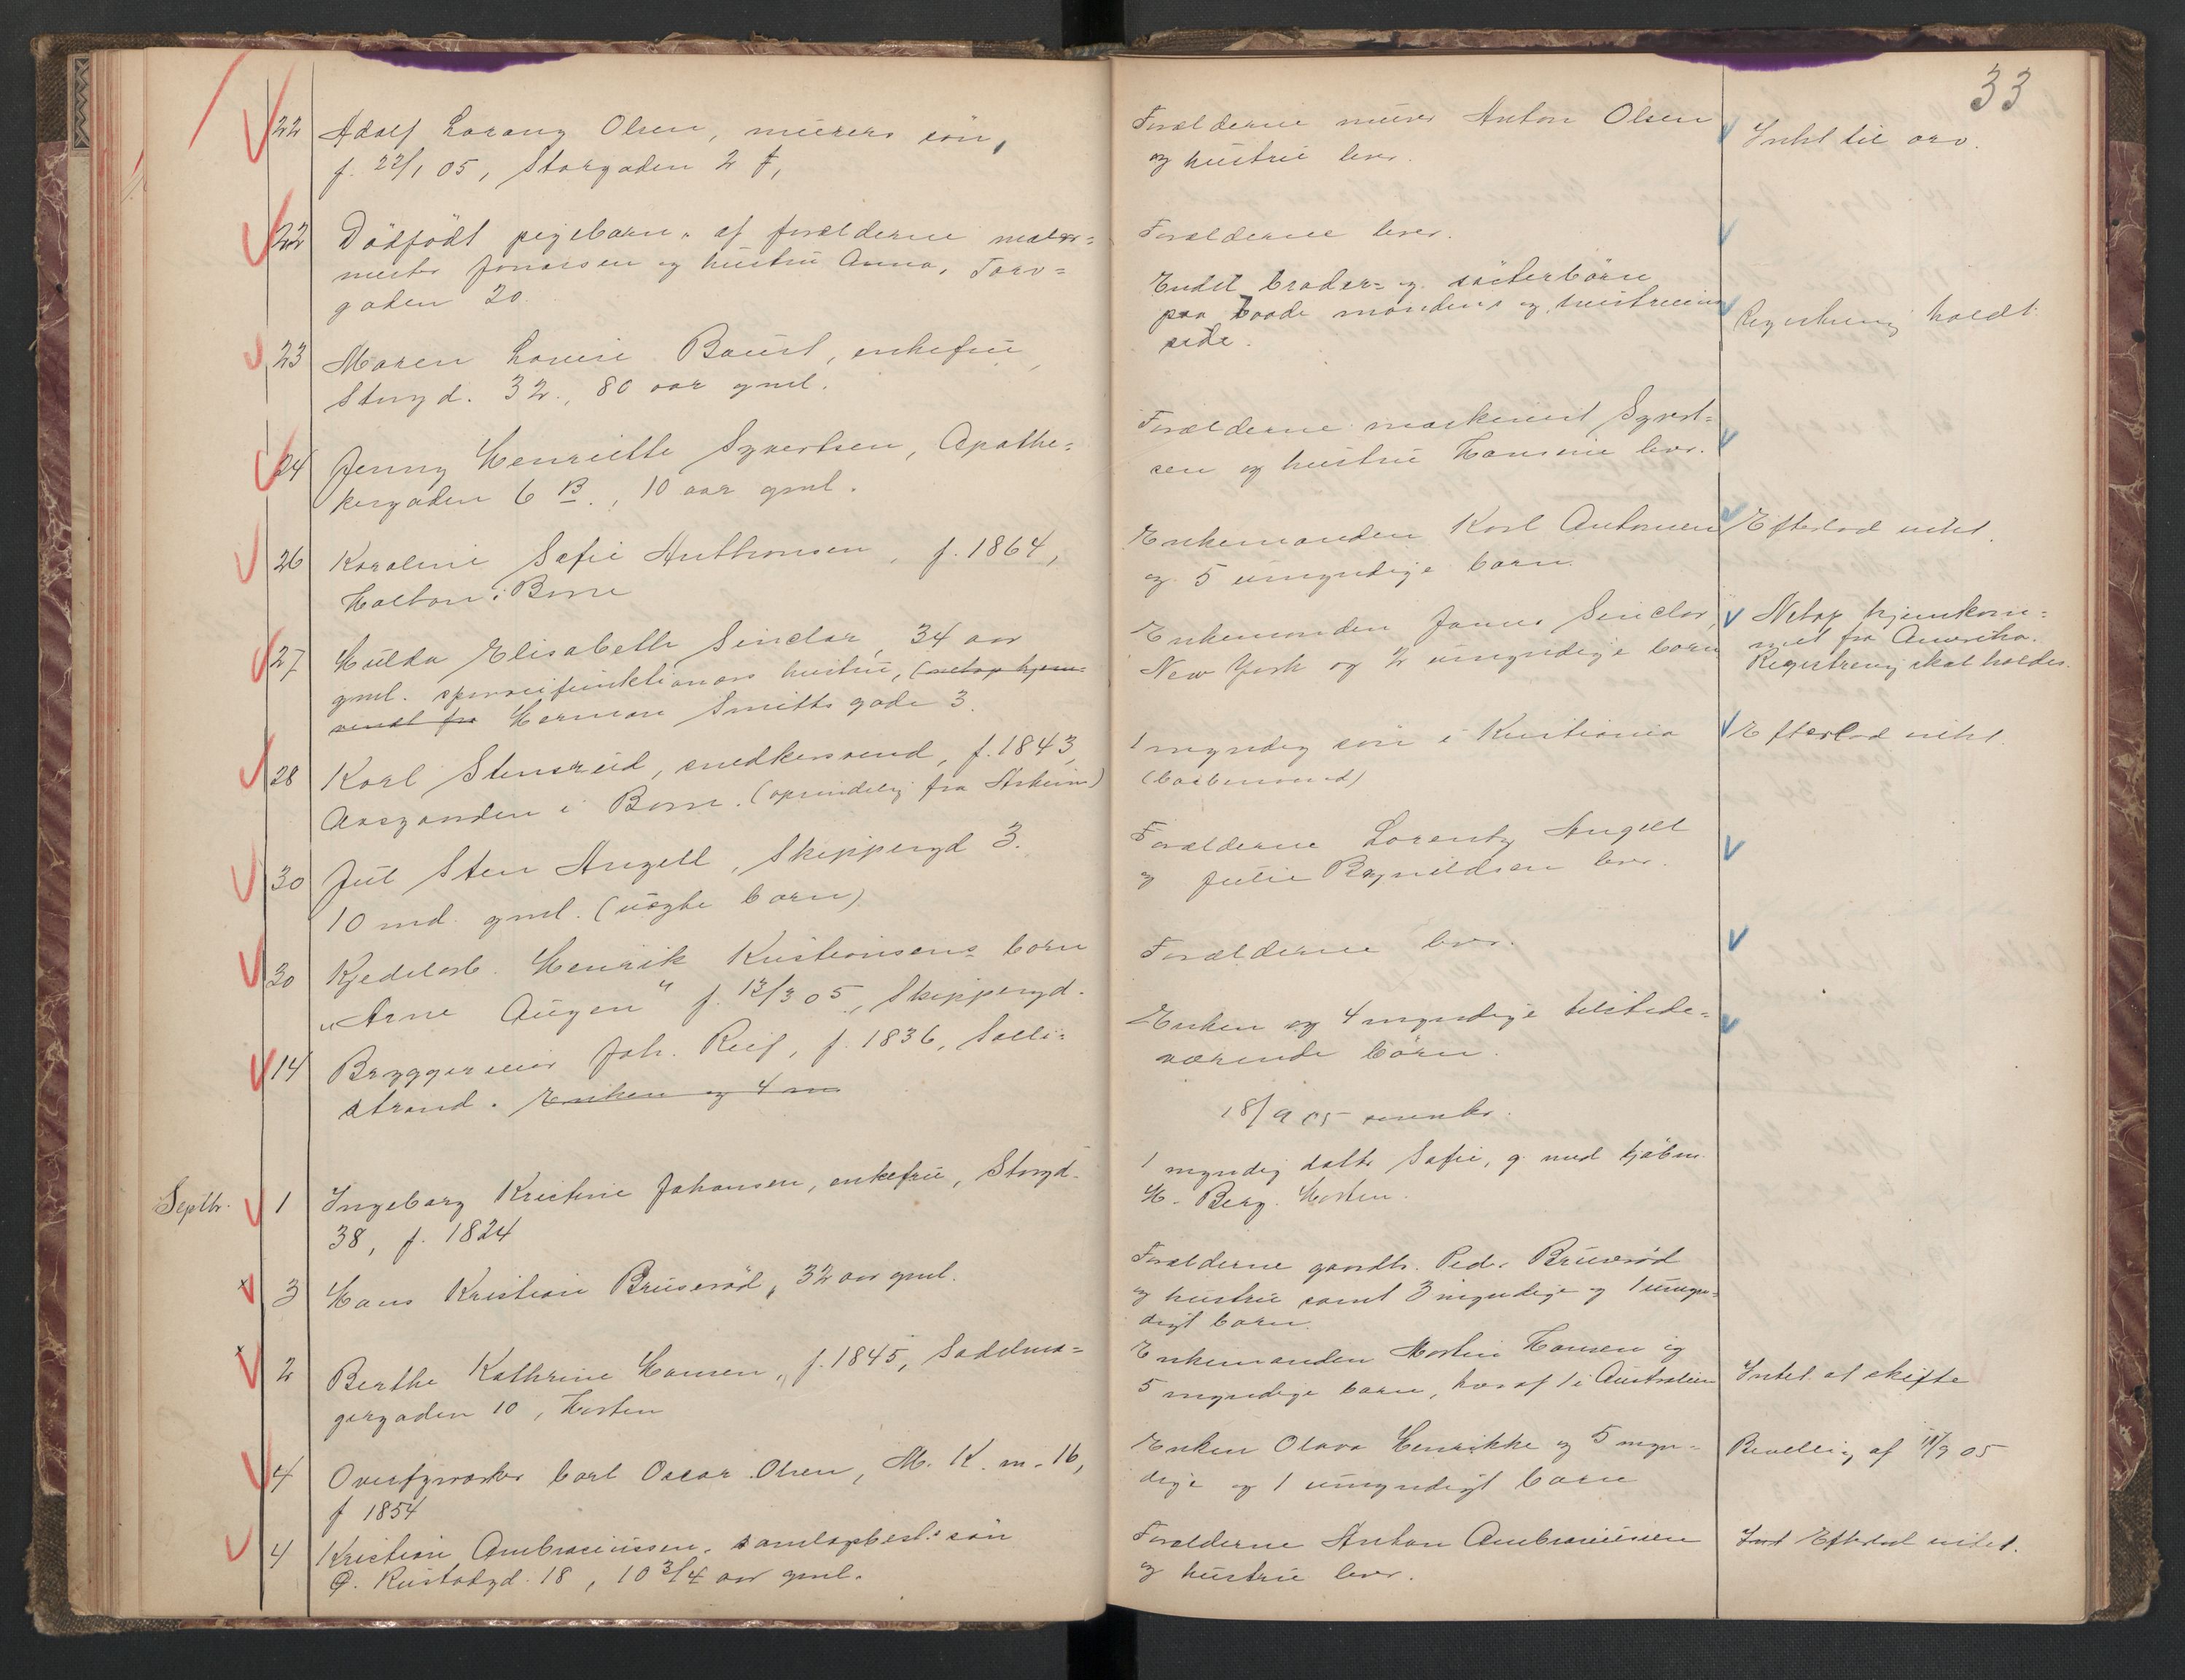 33
22 Adolf Lorang Olsen, murers søn,
f. 22/1 05, Storgaden 2 f,
Forælderne murer Anton Olsen
og hustru lever.
Intet til arv.
22 Dödfödt pigebarn af forælderne maler=
mester Jonassen og hustru Anna, Torv=
gaden 20.
Forælderne lever.
23 Maren Lovise Baust, enkefru,
Storgd. 32, 80 aar gml.
Endel broder= og søsterbörn
paa baade mandens og hustruens
side.
Registrering holdt.
24 Jenny Henriette Syvertsen, Apothe=
kergaden 6 B., 10 aar gml.
Forælderne maskinist Syvert=
sen og hustru Hansine lever.
26 Karoline Sofie Anthonsen, f. 1864,
Holtan i Borre
Enkemanden Karl Antonsen
og 5 umyndige børn.
Efterlod intet.
27 Hulda Elisabeth Sinclar, 34 aar
gml. sporveifunktionærs hustru, (netop hjem-
vendt fra Herman Smitts gade 3.
Enkemanden James Sinclar,
New York og 2 umyndige børn
Netop hjemkom=
met fra Amerika.
Registrering skal holdes.
28 Karl Stensrud, snedkersvend, f. 1843,
Aasgaarden i Borre. (oprindelig fra Askim)
1 myndig søn i Kristiania
Efterlod intet.
30 Jul Sten Angell, Skippergd 3.
10 md. gml. (uægte barn)
Forælderne Lorentz Angell
og Julie Bagnildsen lever.
30 Kjedelarb. Henrik Kristiansens barn
"Arne Augen" f. 13/3 05, Skippergd.
Forælderne lever.
14 Bryggerieier Joh. Riis, f. 1836, Solli=
strand. Enken og 4 m
Enken og 4 myndige tilstede=
værende børn.
18/9 05
Septbr. 1 Ingeborg Kristine Johansen, enkefru, Storgd.
38, f. 1824
1 myndig datter Sofie, g. med kjøbm.
H. Berg. Horten.
3 Hans Kristian Bruserød, 32 aar gml.
Forælderne gaardbr. Peder Bruserød
og hustru samt 3 myndige og 1 umyn=
digt barn.
2 Berthe Kathrine Hansen, f. 1845, Sadelma=
gergaden 10, Horten
Enkemanden Martin Hansen og
5 myndige børn, hvoraf 1 i Australien
Intet at skifte
4 Overfyrværker Carl Oscar Olsen, M. K. m. 16,
f 1854
Enken Olava Henrikke og 5 myn=
dige og 1 umyndigt barn
Bevilling af 11/9 05
4 Kristian Ambrosiussen, søn
18, 10 3/4 aar gml.
Forælderne Anton Ambrosiussen
og hustru lever.
Int Efterlod intet.